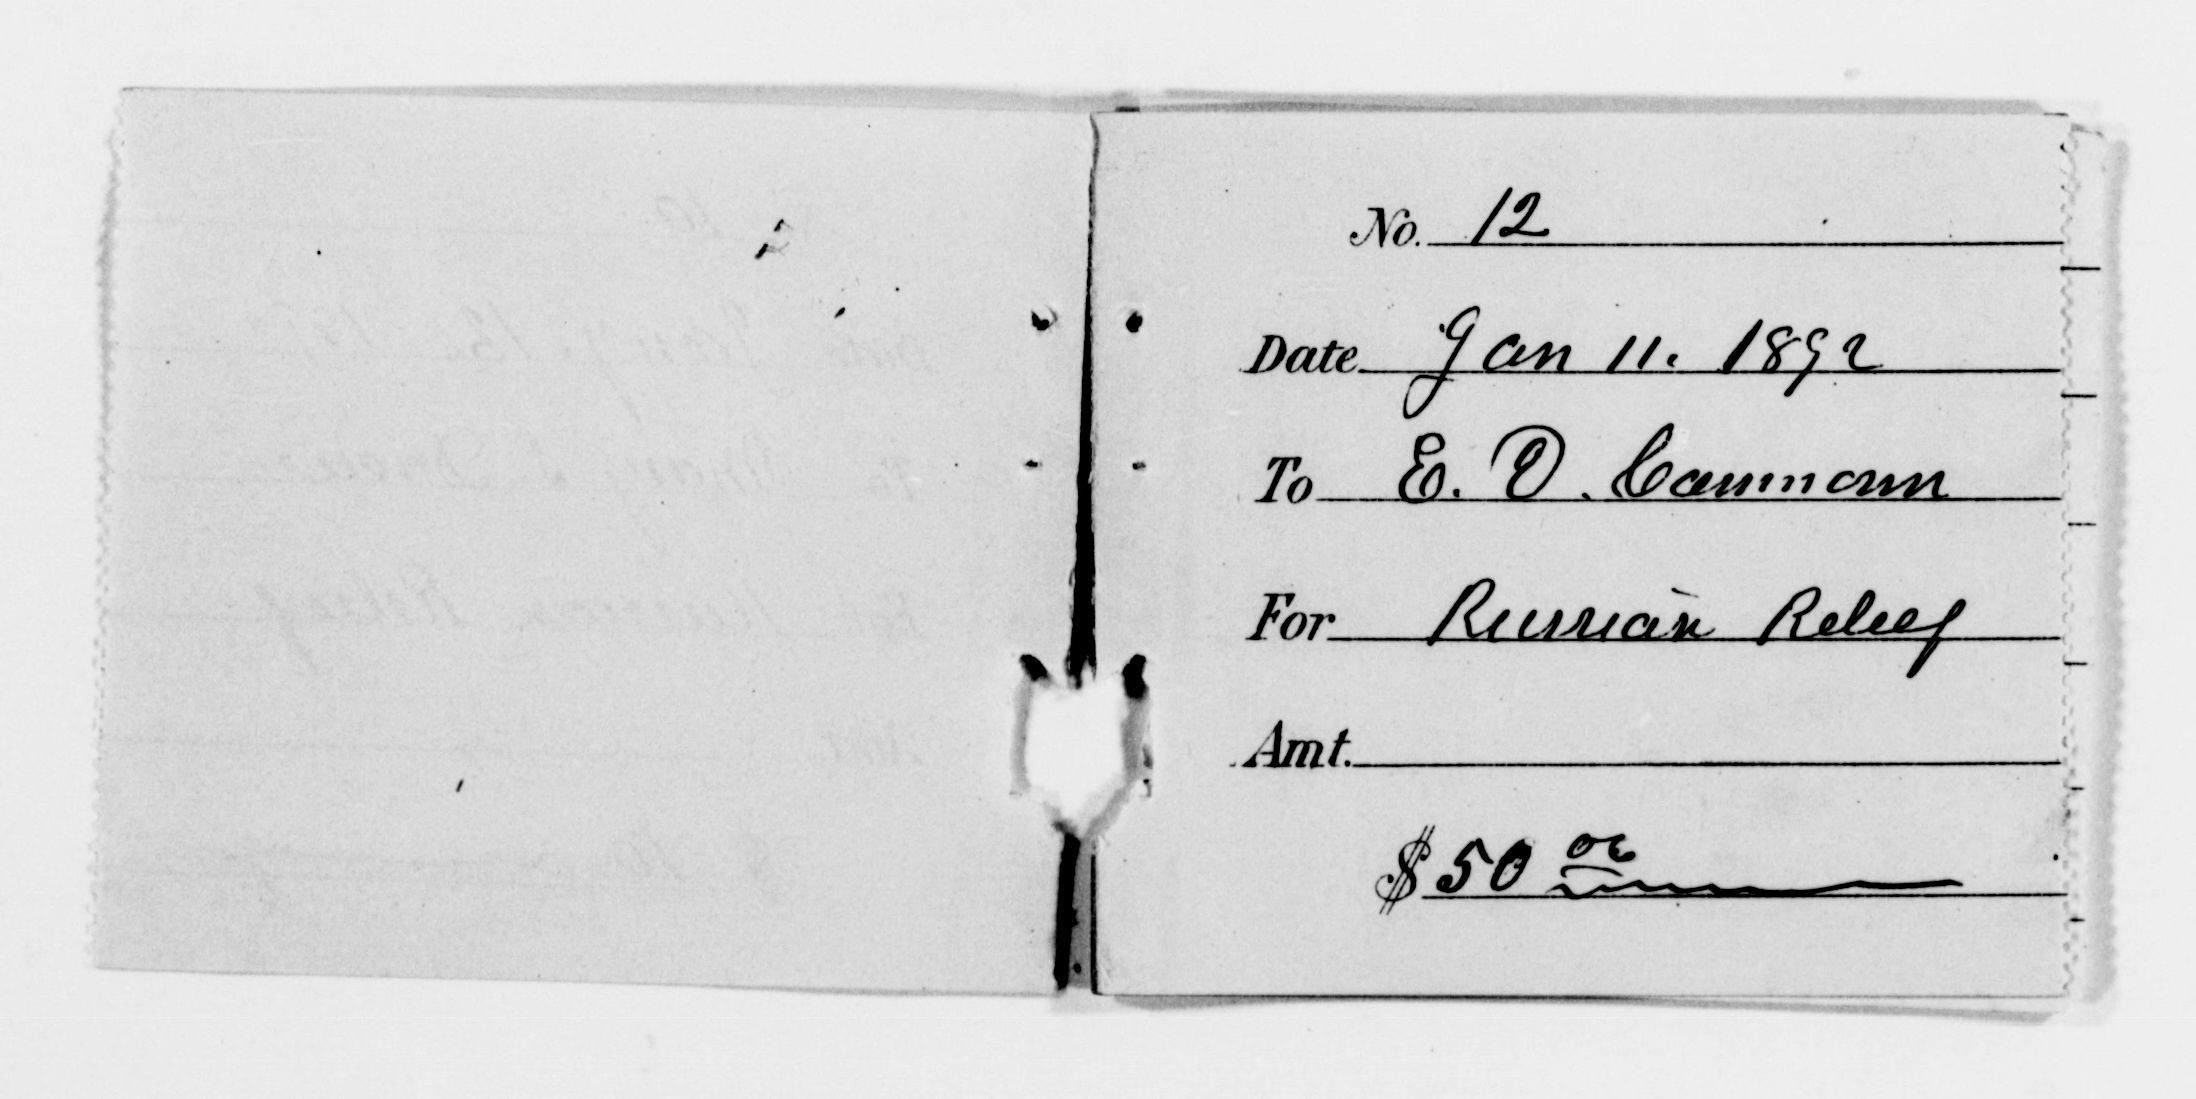 No. 12
Date Jan 11. 1892
To E. D. Cammann
For Russian Relief
Amt.
$ 50 00